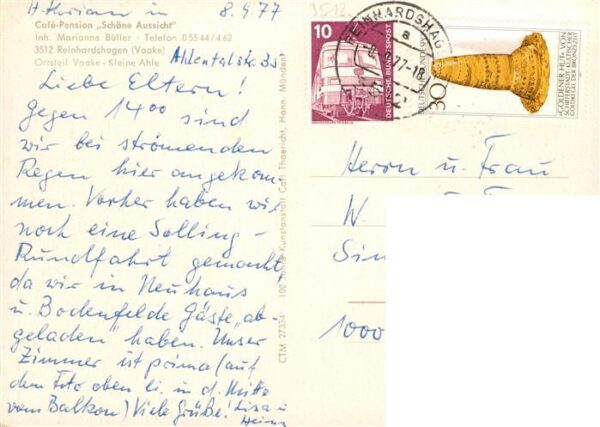 8.4.77
Café-Pension „Schöne Aussicht"
Inh. Marianne Büller · Telefon 0 55 44 / 4 62
3512 Reinhardshagen (Vaake)
Ortsteil Vaake - Kleine Ahle
Ahlentalstr.
Liebe Eltern!
Gegen 14⁰⁰ sind
wir bei strömenden
Regen hier angekom-
men. Vorher haben wir
noch eine Solling-
Rundfahrt gemacht,
da wir in Neuhaus
u. Bodenfelde Gäste „ab-
geladen" haben. Unser
Zimmer ist prima (auf
dem Foto oben li. in d. Mitte
vom Balkon) Viele Grüße! Lisa u
Heinz
CTM 27334 100 Jahre Kunstanstalt Carl Thoericht, Hann. Münden
3512 REINHARDSHAGEN
a
10
DEUTSCHE BUNDESPOST
30
DEUTSCHE BUNDESPOST
»GOLDENER HUT« VON
SCHIFFERSTADT · KULTISCHER
KEGEL DER BRONZEZEIT
Herrn u. Frau
W
Sin
1000